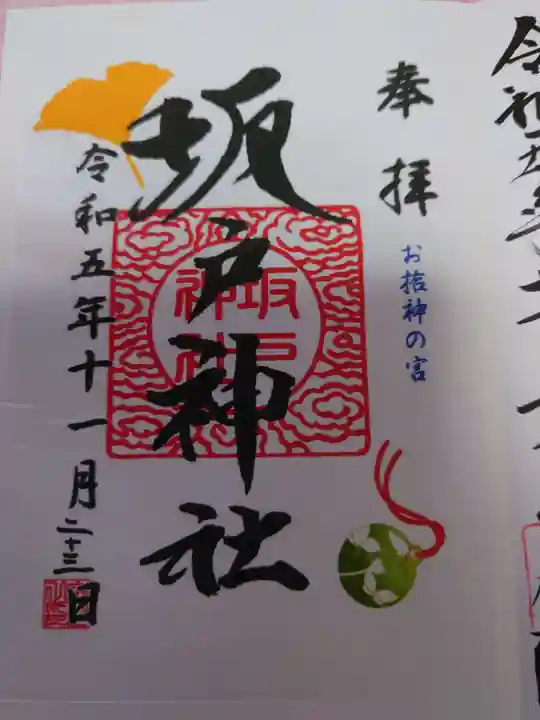 奉拝
お捨神の宮
坂戸神社
坂戸
神社
令和五年十一月二十三日
令和五年十一